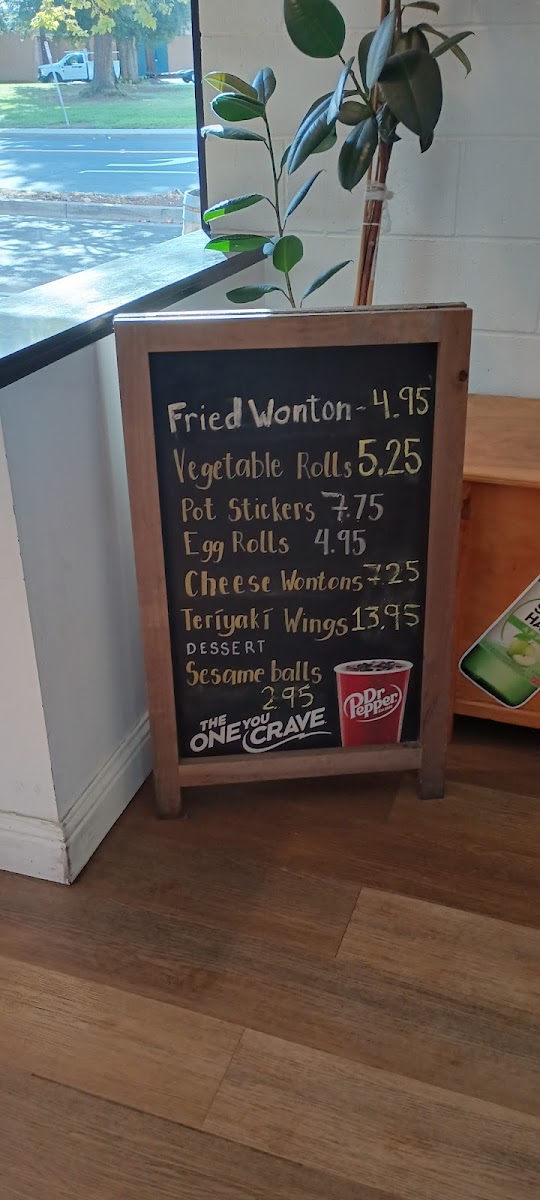 Fried Wonton - 4.95
Vegetable Rolls 5.25
Pot Stickers 7.75
Egg Rolls 4.95
Cheese Wontons 7.25
Teriyaki Wings 13.95
DESSERT
Sesame balls
2.95
THE
ONE YOU
CRAVE
Dr
Pepper